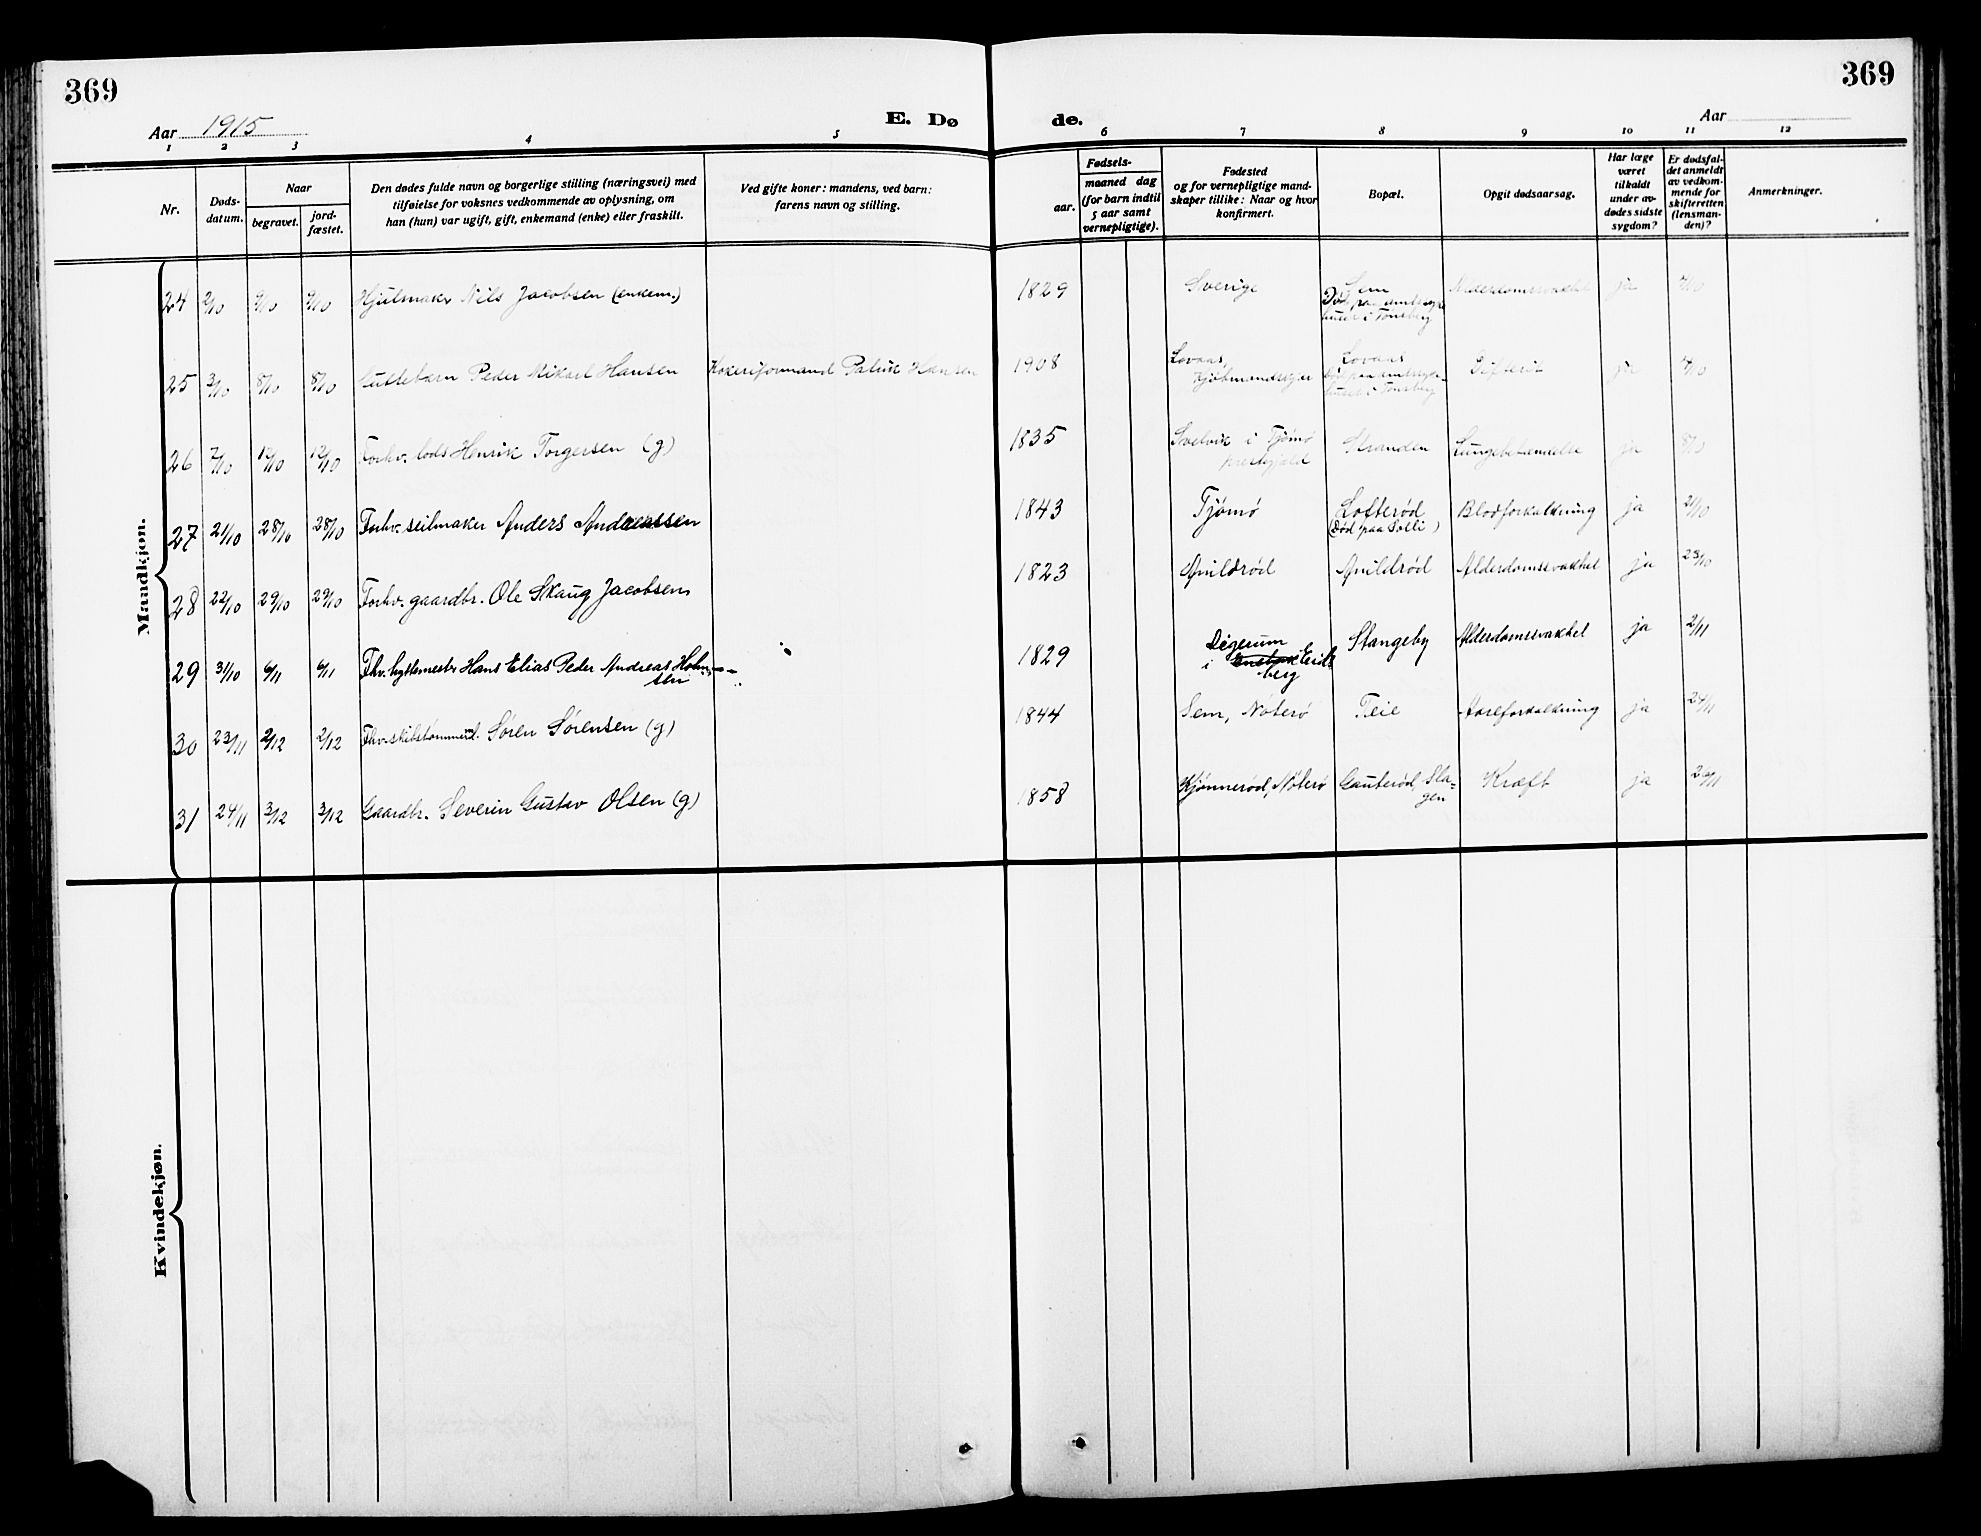 369
369
Aar 1915
E. Dø
de.
Aar
1 2 3 4 5 6 7 8 9 10 11 12
Nr.
Døds-
datum.
Naar
begravet.
jord-
fæstet.
Den dødes fulde navn og borgerlige stilling (næringsvei) med
tilføielse for voksnes vedkommende av oplysning, om
han (hun) var ugift, gift, enkemand (enke) eller fraskilt.
Ved gifte koner: mandens, ved barn:
farens navn og stilling.
Fødsels-
aar.
maaned dag
(for barn indtil
5 aar samt
vernepligtige).
Fødested
og for vernepligtige mand-
skaper tillike: Naar og hvor
konfirmert.
Bopæl.
Opgit dødsaarsag.
Har læge
været
tilkaldt
under av-
dødes sidste
sygdom?
Er dødsfal-
det anmeldt
av vedkom-
mende for
skifteretten
(lensman-
den)?
Anmerkninger.
Mandkjøn.
24 2/10 9/10 9/10 Hjulmaker Nils Jacobsen (enkem.) 1829 Sverige Sem Alderdomssvakhet ja 4/10
Død paa amtssyke
huset i Tønsberg
25 3/10 8/10 8/10 Peder Mikael Hansen Kokeriformand Patrik Hansen 1908 Lovaas Lovaas Difterit ja 4/10
Død paa amtssyke-
huset i Tønsberg
26 7/10 12/10 12/10 Forhv. lods Henrik Torgersen (g) 1835 Svelvik i Tjømø Stranden Lungebetændelse ja 8/10
prestegjæld
27 21/10 28/10 28/10 Forhv. seilmaker Anders Andreassen 1843 Tjømø Lofterød Blodforkalkning ja 21/10
(Død paa Solli)
28 22/10 29/10 29/10 Forhv. gaardbr. Ole Skaug Jacobsen 1823 Hvildrød Hvildrød Alderdomssvakhet ja 23/10
29 31/10 6/11 6/11 Fhv. hyttemester Hans Elias Peder Andreas Holm- 1829 Digerum Stangeby Alderdomssvakhet ja 2/11
sen i Eids
berg
30 23/11 2/12 2/12 Fhv. skibstømmerm. Søren Sørensen (g) 1844 Sem, Nøterø Teie Aareforkalkning ja 24/11
31 24/11 3/12 3/12 Gaardbr. Severin Gustav Olsen (g) 1858 Kjønnerød, Nøterø Gauterød, Sla- Kræft ja 26/11
gen
Kvindekjøn.